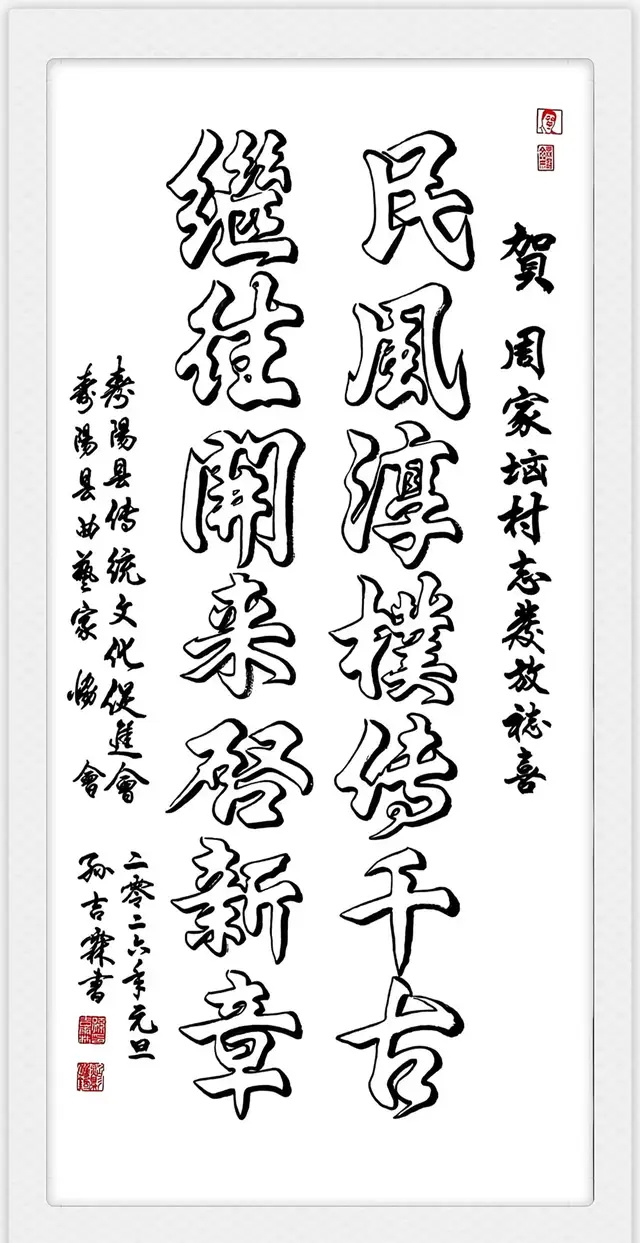 賀 周家垴村志發放誌喜
民風淳樸传千古
繼往開来啓新章
壽陽县传统文化促進會
壽陽县曲藝家協會
二零二六年元旦
孙吉霖書